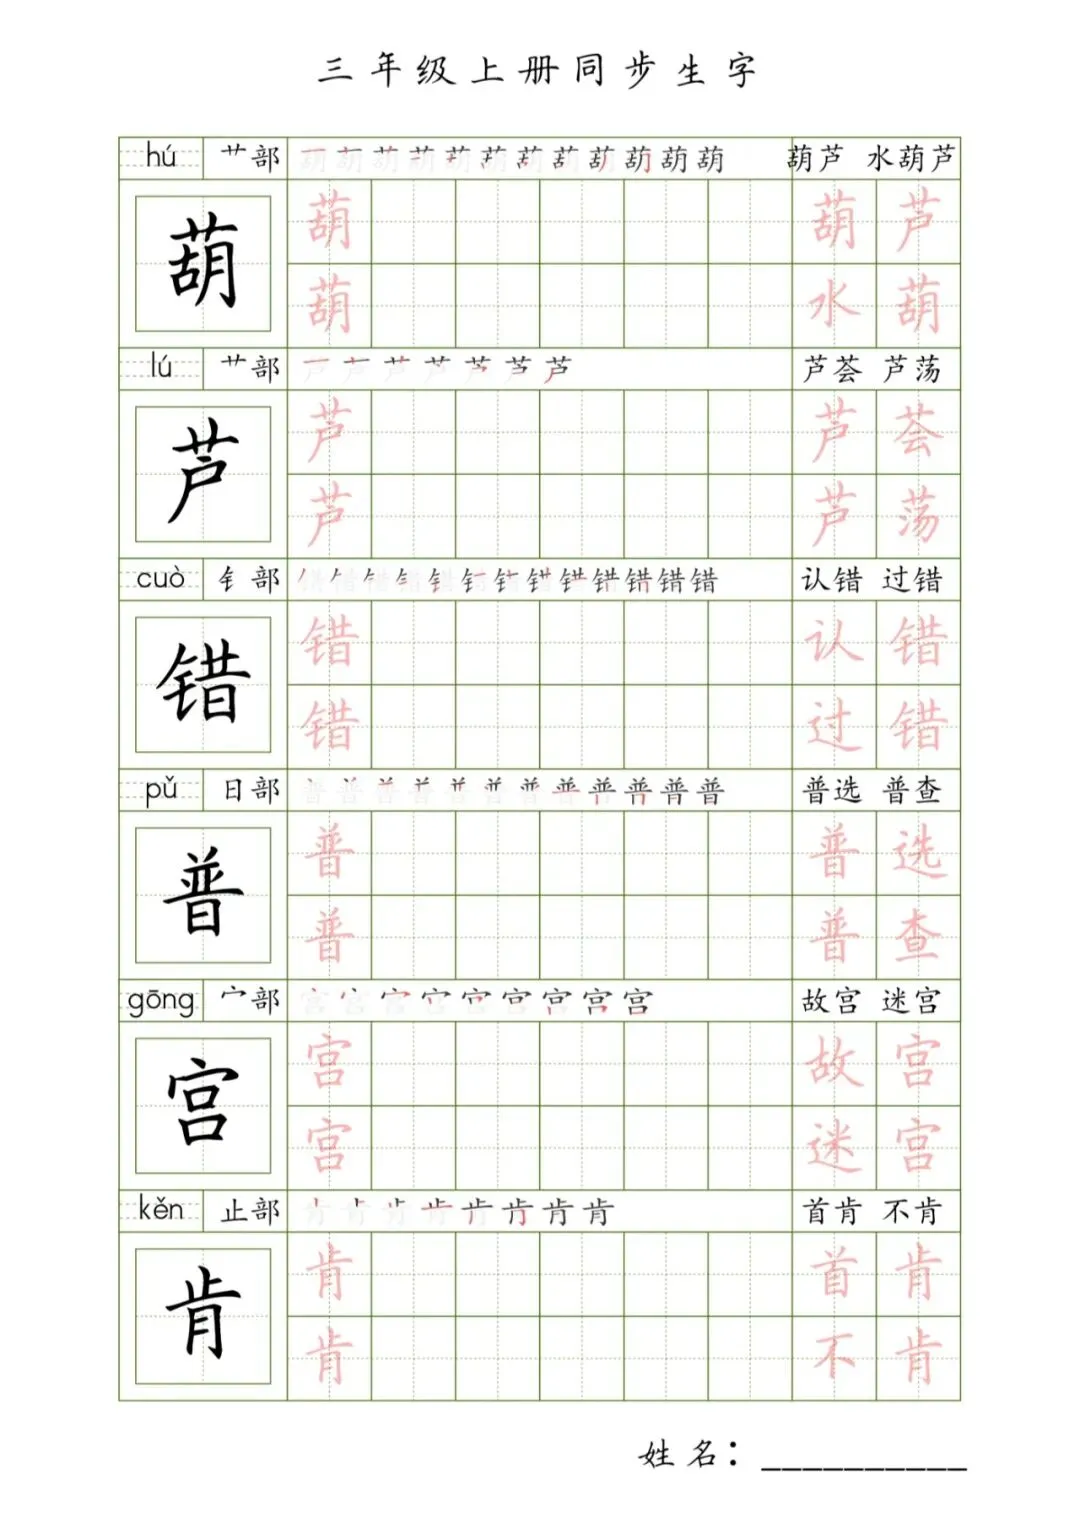 三年级上册同步生字
hú 艹部 葫葫葫葫葫葫葫葫葫葫葫葫 葫芦 水葫芦
葫 葫 葫芦
葫 水葫
lú 艹部 芦芦芦芦芦芦芦 芦荟 芦荡
芦 芦 芦荟
芦 芦荡
cuò 钅部 错错错错错错错错错错错错错 认错 过错
错 错 认错
错 过错
pǔ 日部 普普普普普普普普普普普普 普选 普查
普 普 普选
普 普查
gōng 宀部 宫宫宫宫宫宫宫宫宫 故宫 迷宫
宫 宫 故宫
宫 迷宫
kěn 止部 肯肯肯肯肯肯肯肯 首肯 不肯
肯 肯 首肯
肯 不肯
姓名：__________